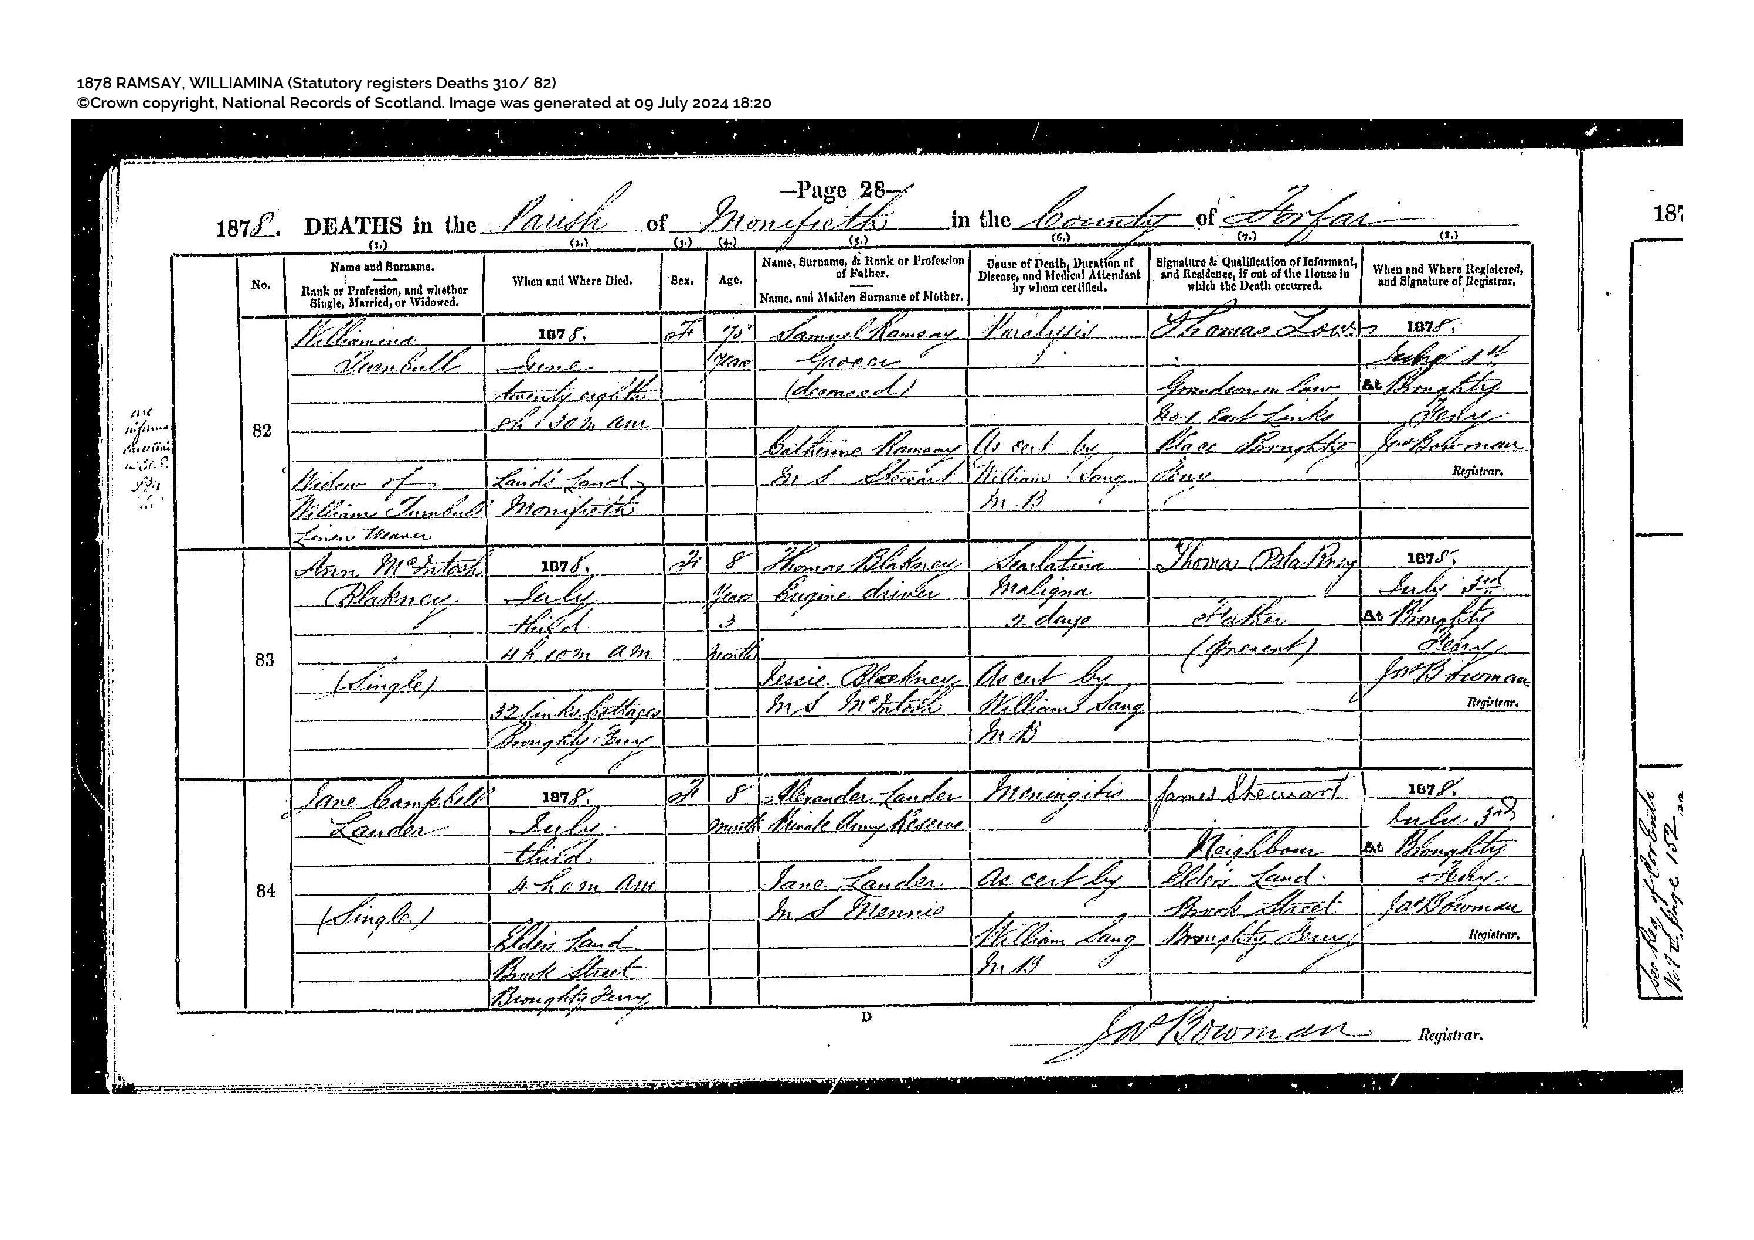 1878 RAMSAY, WILLIAMINA (Statutory registers Deaths 310/ 82)
©Crown copyright, National Records of Scotland. Image was generated at 09 July 2024 18:20
—Page 28—
1878. DEATHS in the Parish of Monifieth in the County of Forfar
(1.) (2.) (3.) (4.) (5.) (6.) (7.) (8.)
No.
Name and Surname.
Rank or Profession, and whether
Single, Married, or Widowed.
When and Where Died.
Sex.
Age.
Name, Surname, & Rank or Profession
of Father.
Name, and Maiden Surname of Mother.
Cause of Death, Duration of
Disease, and Medical Attendant
by whom certified.
Signature & Qualification of Informant,
and Residence, if out of the House in
which the Death occurred.
When and Where Registered,
and Signature of Registrar.
82
Williamina
Turnbull
Widow of
William Turnbull
Linen Weaver
1878.
June
twenty eighth
30 m am
Laird's Land
Monifieth
F
75
Years
Samuel Ramsay
Grocer
(deceased)
Catherine Ramsay
M S Stewart
Paralysis
As cert by
William Sang
M B
Thomas Low
Grandson in law
No 1 East Links
Place Broughty
Ferry
1878.
July 1st
At Broughty
Ferry
Jas Bowman
Registrar.
83
Ann McIntosh
Blakney
(Single)
1878.
July
third
4 h 10 m am
32 Links Cottages
Broughty Ferry
F
8
Years
3
months
Thomas Blakney
Engine driver
Jessie Blakney
M S McIntosh
Scarlatina
Maligna
2 days
As cert by
William Sang
M B
Thomas Blakney
Father
(Present)
1878.
July 3rd
At Broughty
Ferry
Jas Bowman
Registrar.
84
Jane Campbell
Lauder
(Single)
1878.
July
third
4 h 0 m am
Elder's Land
Brook Street
Broughty Ferry
F
8
months
Alexander Lauder
Private Army Reserve
Jane Lauder
M S Mennie
Meningitis
As cert by
William Sang
M B
James Stewart
Neighbour
Elder's Land
Brook Street
Broughty Ferry
1878.
July 3rd
At Broughty
Ferry
Jas Bowman
Registrar.
D
Jas Bowman Registrar.
187